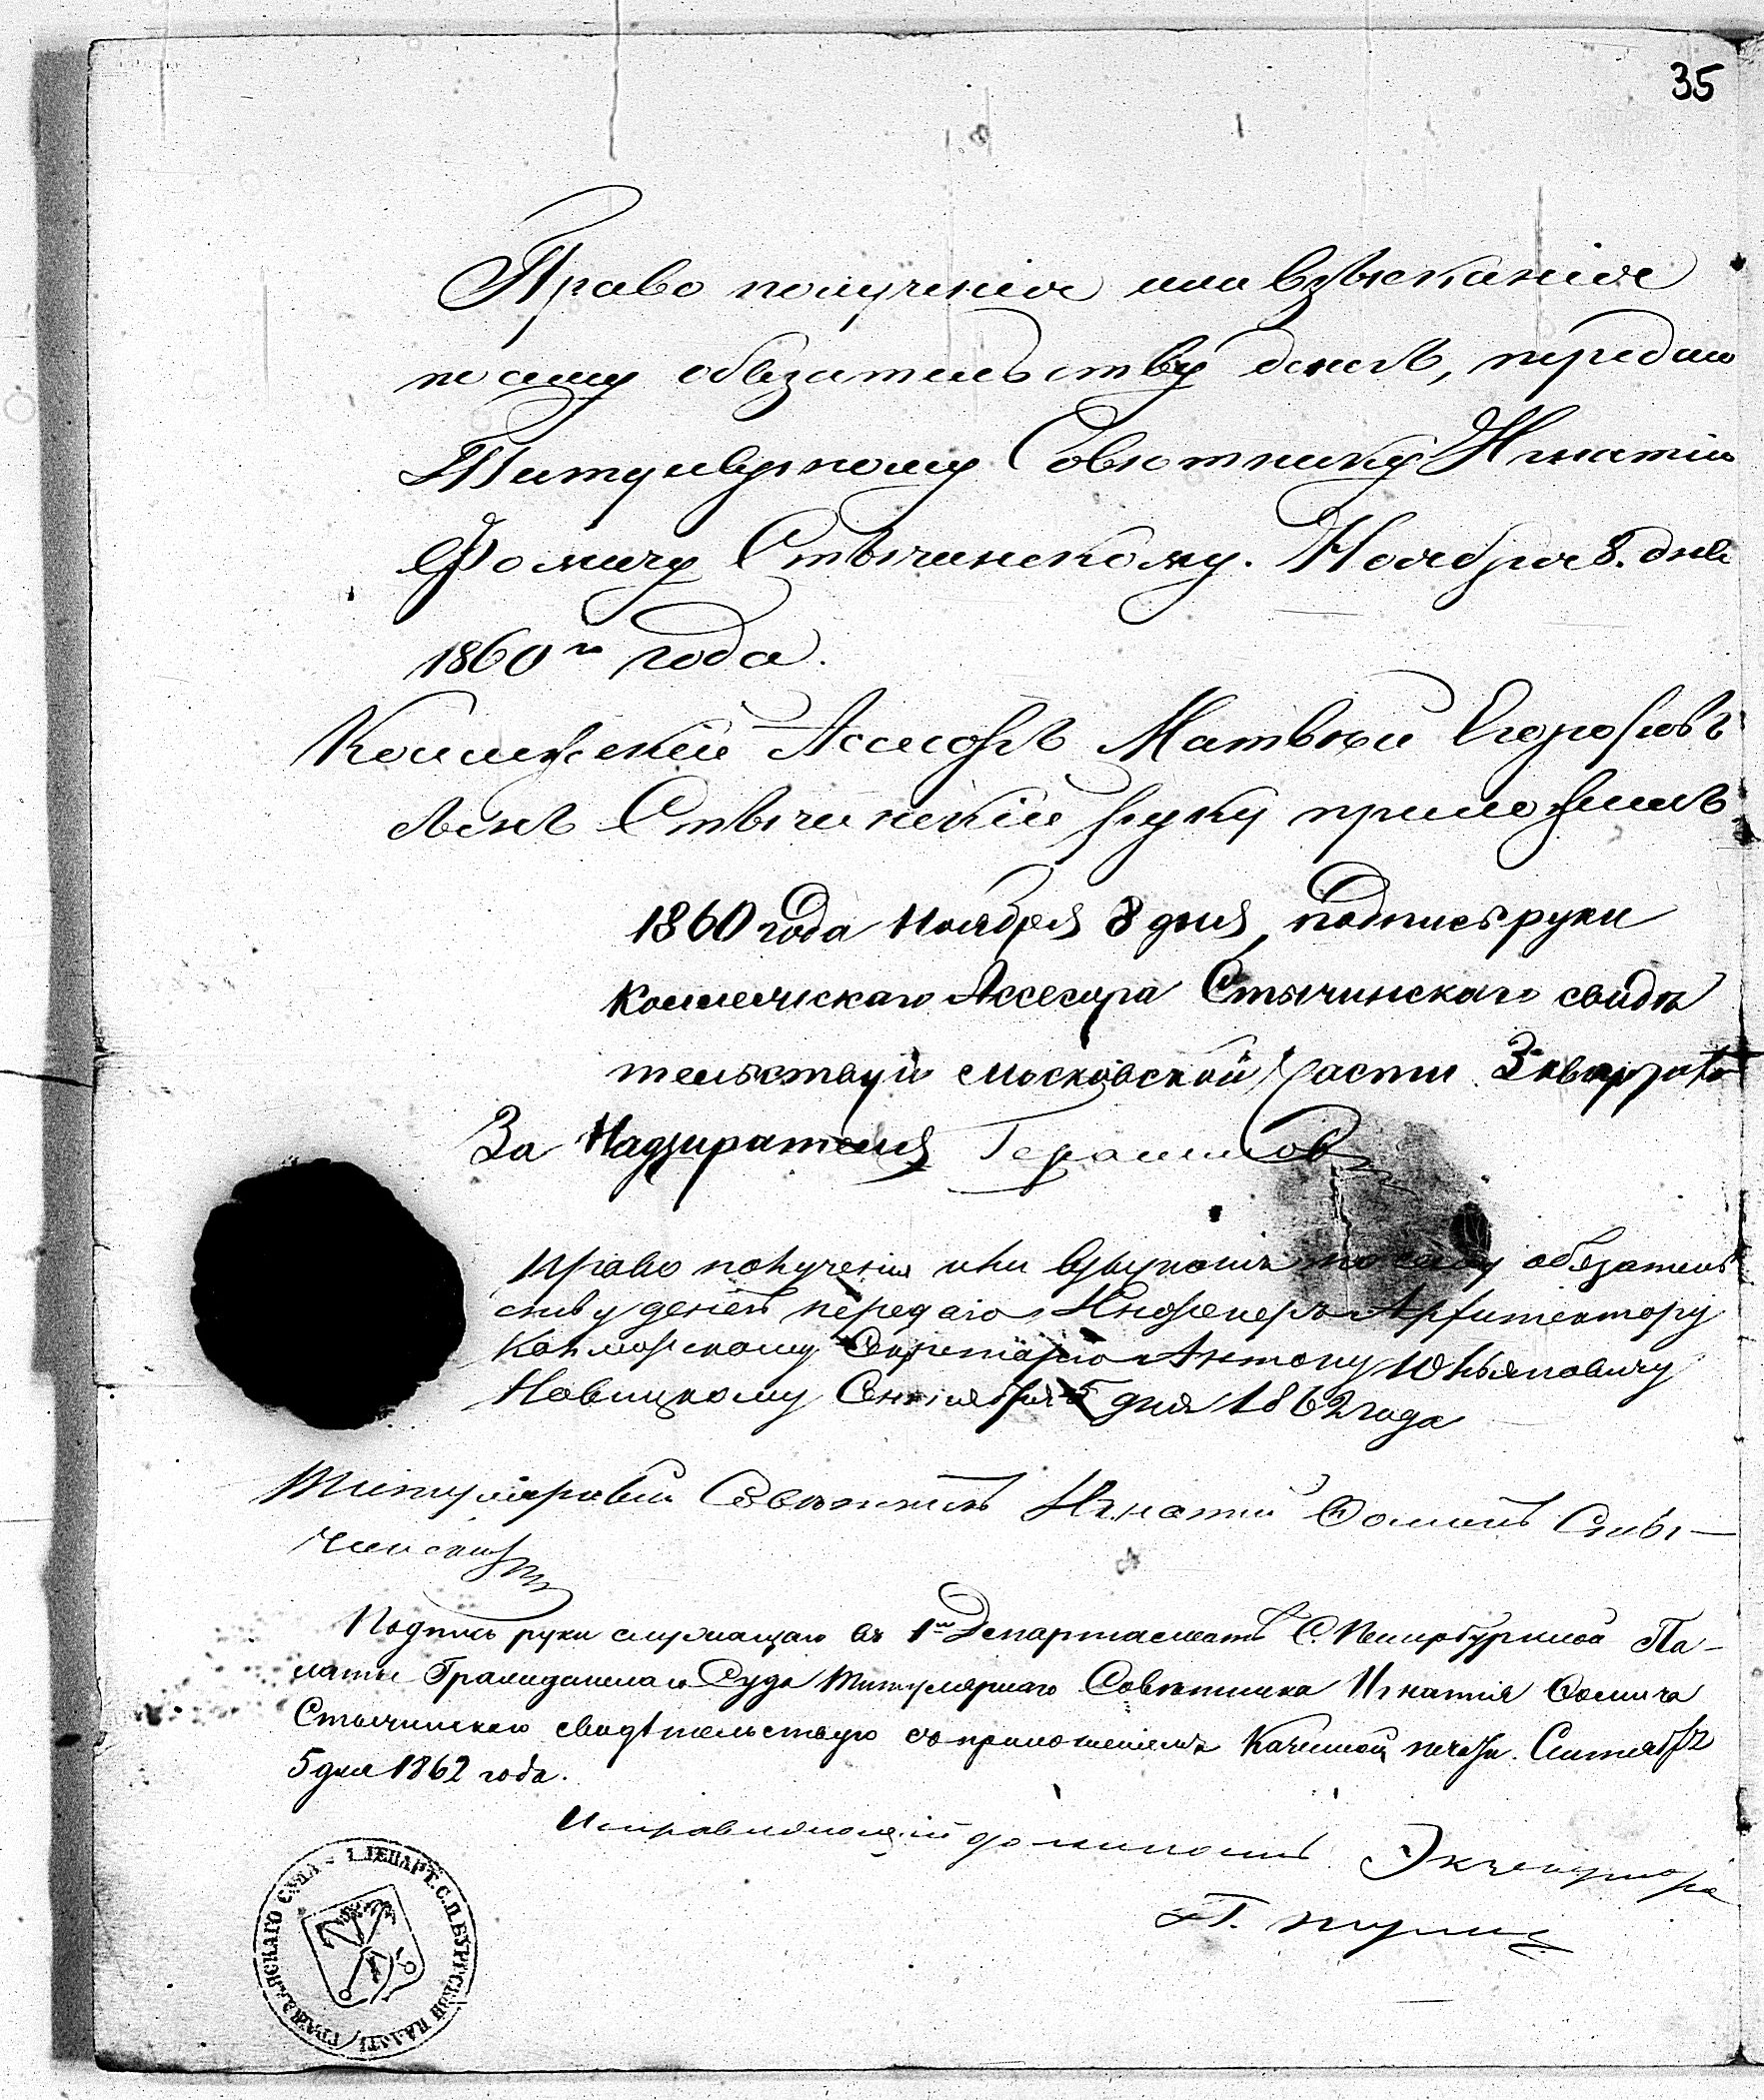 35
Право полученія или взысканія
по сему обязательству денегъ, передаю
Титулярному Совѣтнику Игнатію
Фомичу Стычинскому. Ноября 8. дня
1860го года.
Коллежскій Ассесоръ Матвѣй Егоровъ
сынъ Стычинскій руку приложилъ
1860 года Ноября 8 дня, подпись руки
Коллежскаго Ассесора Стычинскаго свидѣ
тельствую Московской Части 3 квартала
За Надзирателя Герасимов
Право полученія или взысканія по сему обязатель
ству денегъ передаю Инженеръ Архитектору
Коллежскому Секретарю Антону Юльяновичу
Новицкому Сентября 5 дня 1862 года
Титулярный Совѣтникъ Игнатій Фоминъ Сты-
чинскій
Подпись руки служащаго въ 1м Департаментѣ С. Петербургской Па-
латы Гражданскаго Суда Титулярнаго Совѣтника Игнатія Фомича
Стычинскаго свидѣтельствую съ приложеніемъ Казенной печати. Сентября
5 дня 1862 года.
Исправляющій должность Экзекутора
ГРАЖДАНСКАГО СУДА 1 ДЕПАРТ. С.П.БУРГСКОЙ ПАЛАТЫ